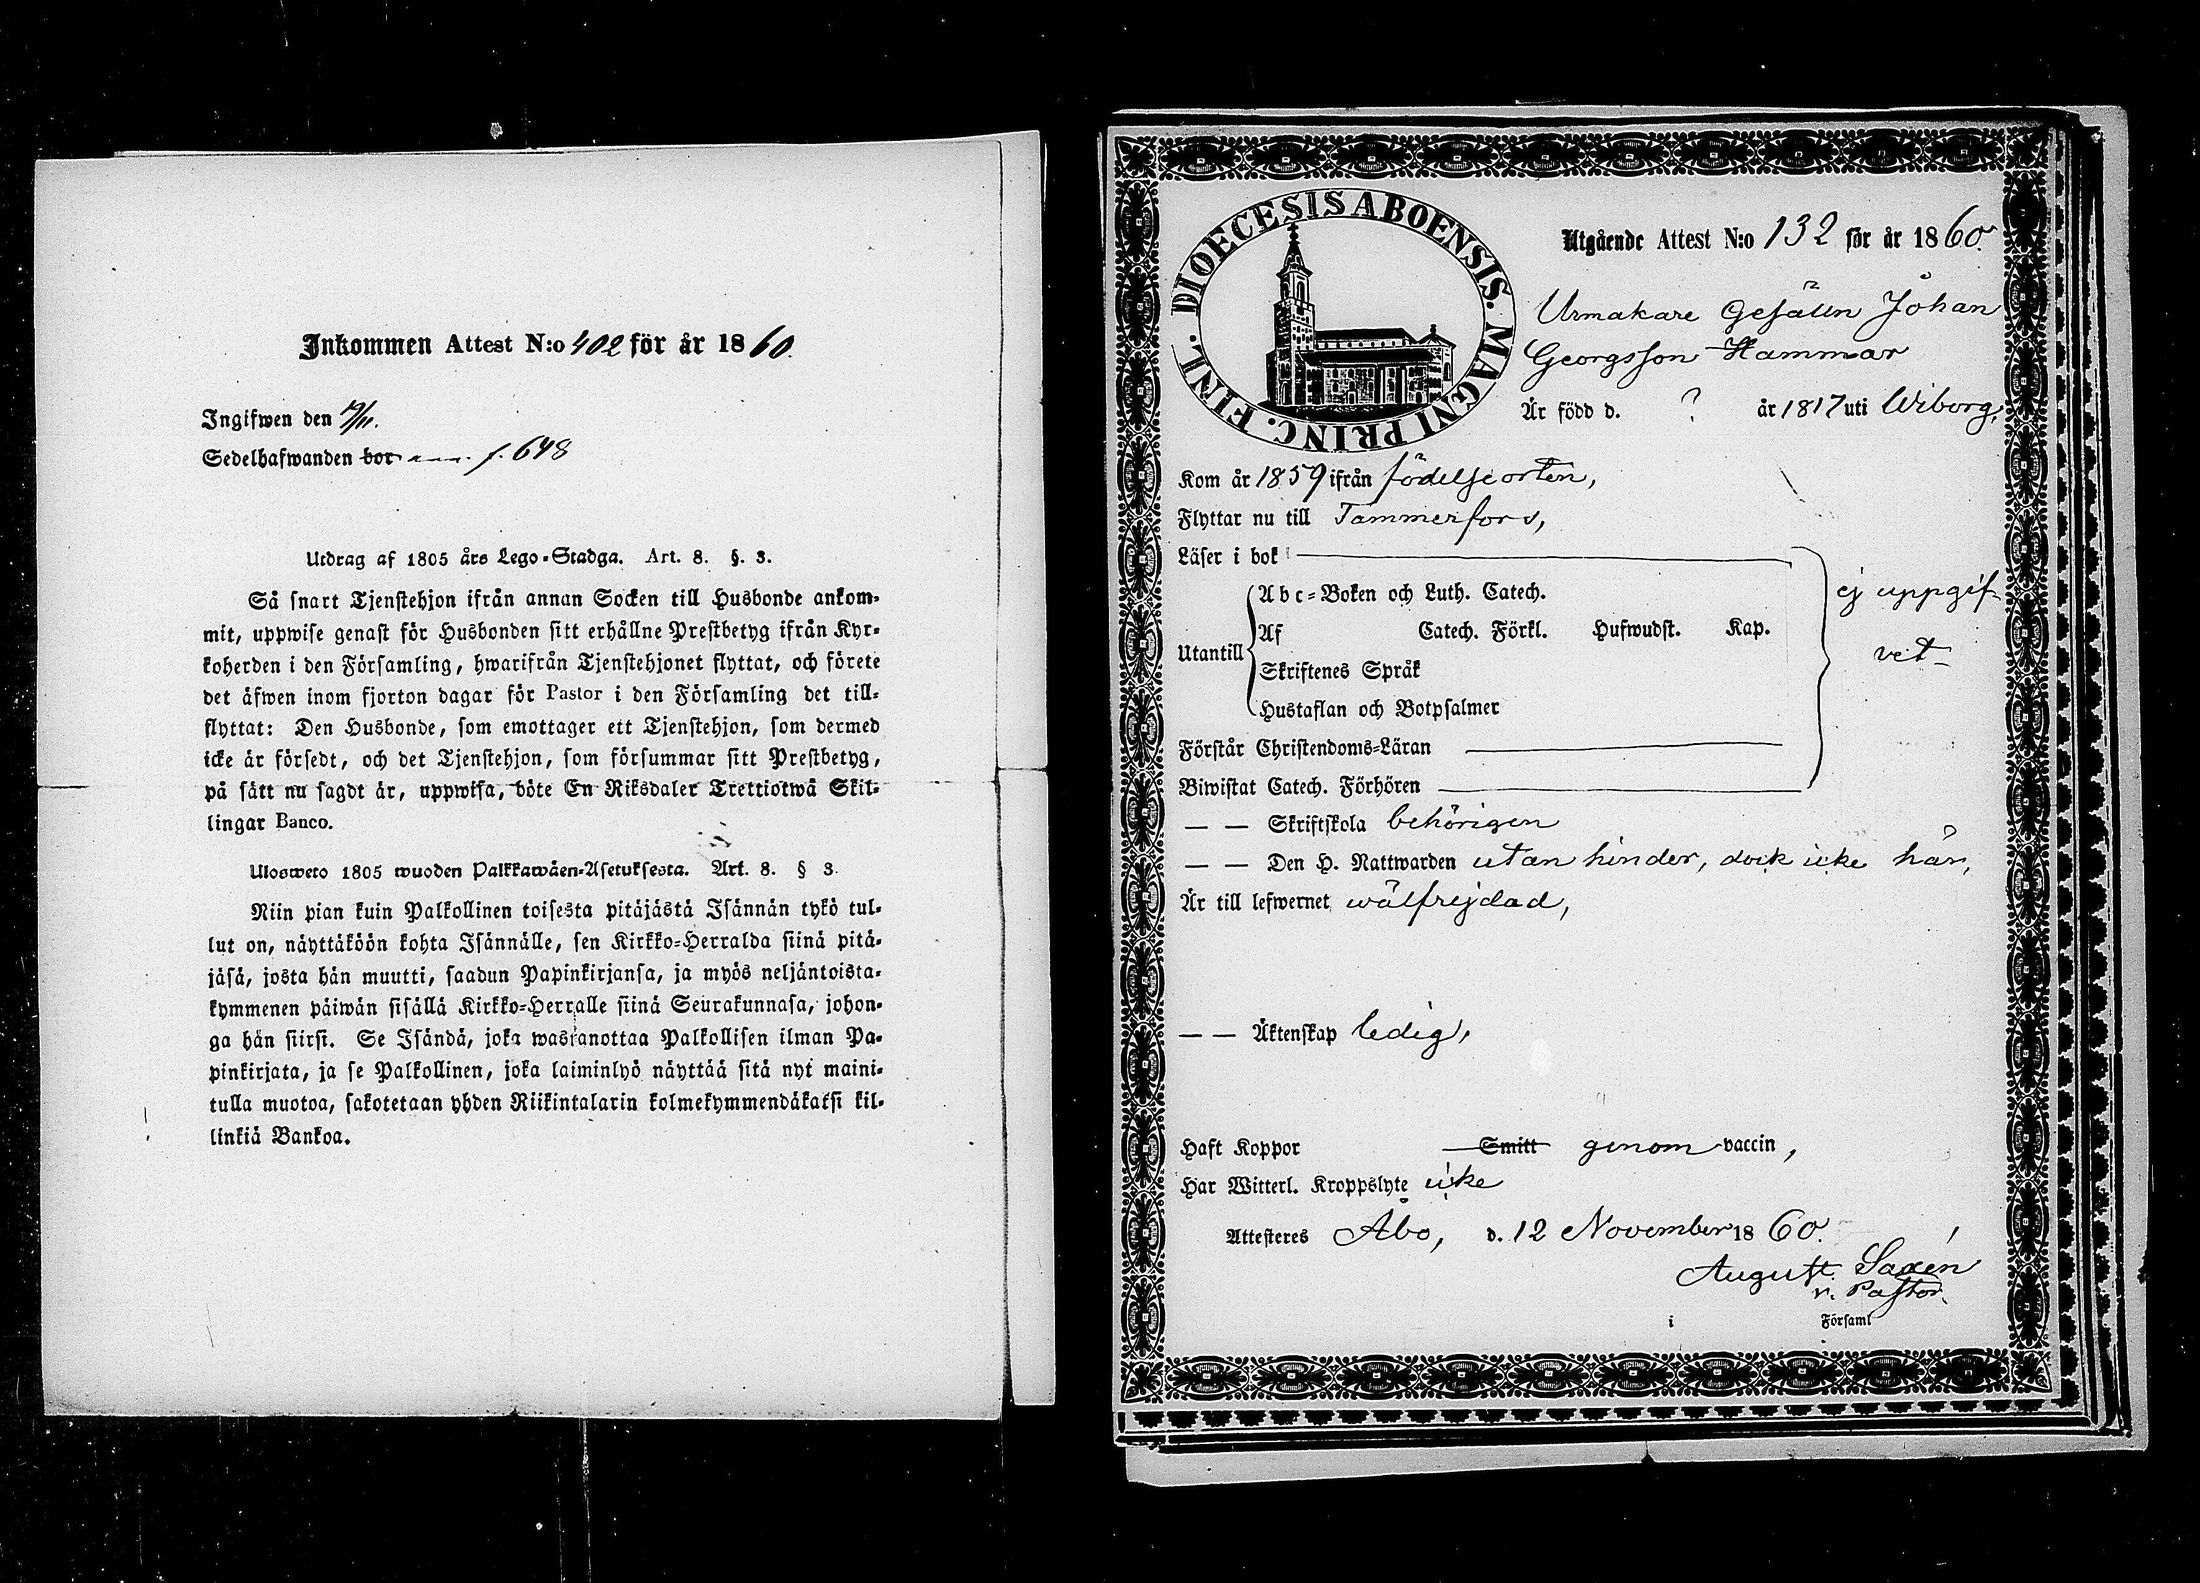 Inkommen Attest N:o 402 för år 1860.
Ingifwen den 19/11.
Sedelhafwanden bor f. 648
Utdrag af 1805 års Lego-Stadga. Art. 8. §. 3.
Så snart Tjenstehjon ifrån annan Socken till Husbonde ankom-
mit, uppwise genast för Husbonden sitt erhållne Prestbetyg ifrån Kyr-
koherden i den Församling, hwarifrån Tjenstehjonet flyttat, och förete
det äfwen inom fjorton dagar för Pastor i den Församling det till-
flyttat: Den Husbonde, som emottager ett Tjenstehjon, som dermed
icke är försedt, och det Tjenstehjon, som försummar sitt Prestbetyg,
på sätt nu sagdt är, uppwisa, böte En Riksdaler Trettiotwå Skil-
lingar Banco.
Ulosweto 1805 wuoden Palkkawäen-Asetuksesta. Art. 8. § 3.
Niin pian kuin Palkollinen toisesta pitäjästä Isännän tykö tul-
lut on, näyttäköön kohta Isännälle, sen Kirkko-Herralda siinä pitä-
jäsä, josta hän muutti, saadun Papinkirjansa, ja myös neljäntoista-
kymmenen päiwän sisällä Kirkko-Herralle siinä Seurakunnasa, johon-
ga hän siirsi. Se Isändä, joka wastanottaa Palkollisen ilman Pa-
pinkirjata, ja se Palkollinen, joka laiminlyö näyttää sitä nyt maini-
tulla muotoa, sakotetaan yhden Riikintalarin kolmekymmendäkaksi kil-
linkiä Bankoa.
DIOECESIS ABOENSIS. MAGNI PRINC. FINL.
Utgående Attest N:o 132 för år 1860.
Urmakare Gesälln Johan
Georgsson Hammar
Är född d. ? år 1817 uti Wiborg,
Kom år 1859 ifrån födelseorten,
Flyttar nu till Tammerfors,
Läser i bok
Abc-Boken och Luth. Catech.
ej uppgif-
Af Catech. Förkl. Hufwudst. Kap.
Utantill
vet
Skriftenes Språk
Hustaflan och Botpsalmer
Förstår Christendoms-Läran
Biwistat Catech. Förhören
— — Skriftskola behörigen
— — Den H. Nattwarden utan hinder, dock icke här,
Är till lefwernet wälfrejdad,
— — Äktenskap ledig,
Haft Koppor Smitt genom vaccin,
Har Witterl. Kroppslyte icke
Attesteres Åbo, d. 12 November 1860.
August Saxén
v. Pastor.
i Församl